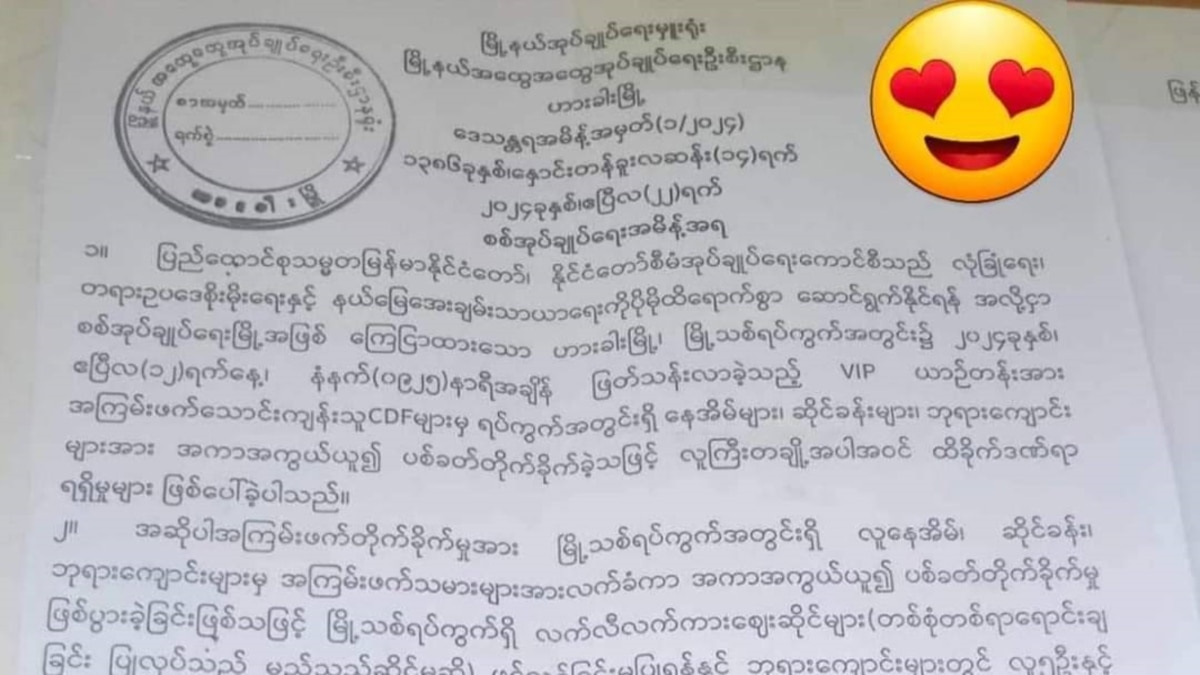 မြို့နယ်အုပ်ချုပ်ရေးမှူးရုံး
မြို့နယ်အထွေထွေအုပ်ချုပ်ရေးဦးစီးဌာန
ဟားခါးမြို့
ဒေသန္တရအမိန့်အမှတ်(၁/၂၀၂၄)
၁၃၈၆ခုနှစ်၊နှောင်းတန်ခူးလဆန်း(၁၄)ရက်
၂၀၂၄ခုနှစ်၊ဧပြီလ(၂၂)ရက်
စစ်အုပ်ချုပ်ရေးအမိန့်အရ
စာအမှတ်
ရက်စွဲ
ဖြန့်
၁။ ပြည်ထောင်စုသမ္မတမြန်မာနိုင်ငံတော်၊ နိုင်ငံတော်စီမံအုပ်ချုပ်ရေးကောင်စီသည် လုံခြုံရေး၊
တရားဥပဒေစိုးမိုးရေးနှင့် နယ်မြေအေးချမ်းသာယာရေးကိုပိုမိုထိရောက်စွာ ဆောင်ရွက်နိုင်ရန် အလို့ငှာ
စစ်အုပ်ချုပ်ရေးမြို့အဖြစ် ကြေငြာထားသော ဟားခါးမြို့၊ မြို့သစ်ရပ်ကွက်အတွင်း၌ ၂၀၂၄ခုနှစ်၊
ဧပြီလ(၁၂)ရက်နေ့၊ နံနက်(၀၉၂၅)နာရီအချိန် ဖြတ်သန်းလာခဲ့သည့် VIP ယာဉ်တန်းအား
အကြမ်းဖက်သောင်းကျန်းသူCDFများမှ ရပ်ကွက်အတွင်းရှိ နေအိမ်များ၊ ဆိုင်ခန်းများ၊ ဘုရားကျောင်း
များအား အကာအကွယ်ယူ၍ ပစ်ခတ်တိုက်ခိုက်ခဲ့သဖြင့် လူကြီးတချို့အပါအဝင် ထိခိုက်ဒဏ်ရာ
ရရှိမှုများ ဖြစ်ပေါ်ခဲ့ပါသည်။
၂။ အဆိုပါအကြမ်းဖက်တိုက်ခိုက်မှုအား မြို့သစ်ရပ်ကွက်အတွင်းရှိ လူနေအိမ်၊ ဆိုင်ခန်း၊
ဘုရားကျောင်းများမှ အကြမ်းဖက်သမားများအားလက်ခံကာ အကာအကွယ်ယူ၍ ပစ်ခတ်တိုက်ခိုက်မှု
ဖြစ်ပွားခဲ့ခြင်းဖြစ်သဖြင့် မြို့သစ်ရပ်ကွက်ရှိ လက်လီလက်ကားဈေးဆိုင်များ(တစ်စုံတစ်ရာရောင်းချ
ခြင်း ပြုလုပ်သည့် မည်သည့်ဆိုင်မဆို) ဘုရားကျောင်းများတွင် လူ၅ဦးနှင့်